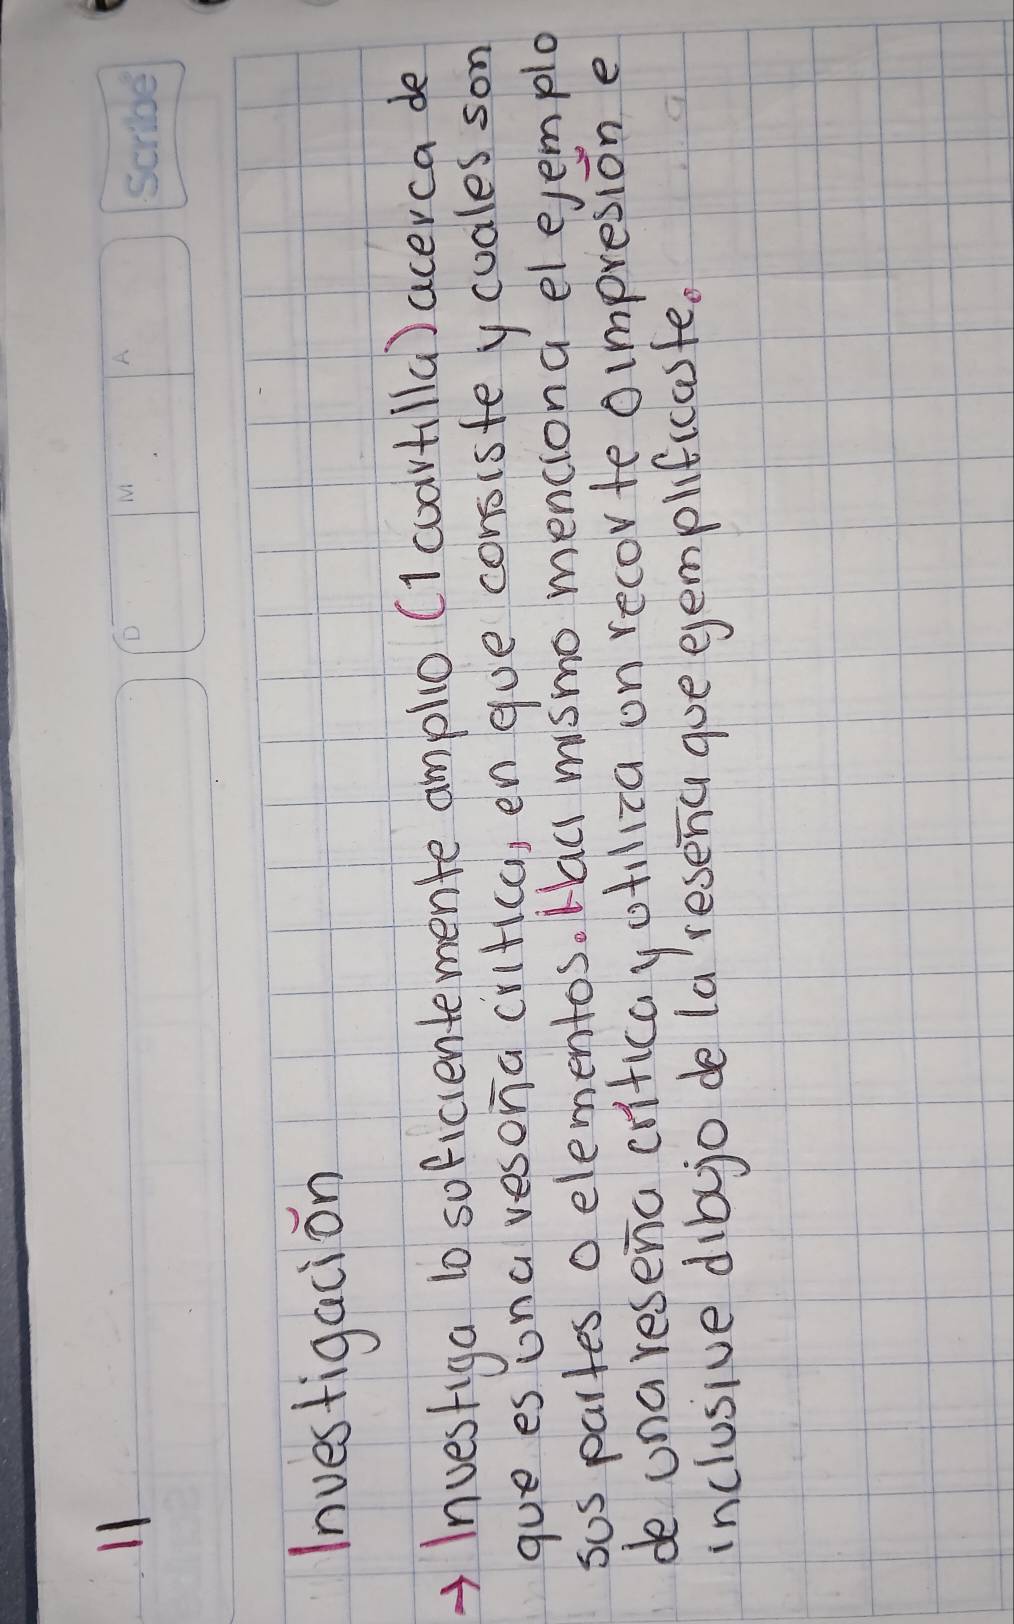 11
Scribe®
D M A
Investigación
→ Investiga lo suficientemente amplio (1 cuartilla) acerca de
que es una resoña crítica, en que consiste y cuales son
sus partes o elementos. Haci mismo menciona el ejemplo
de una reseña crítica y utiliza un recorte o impresión e
inclusive dibujo de la reseña que ejemplificaste.